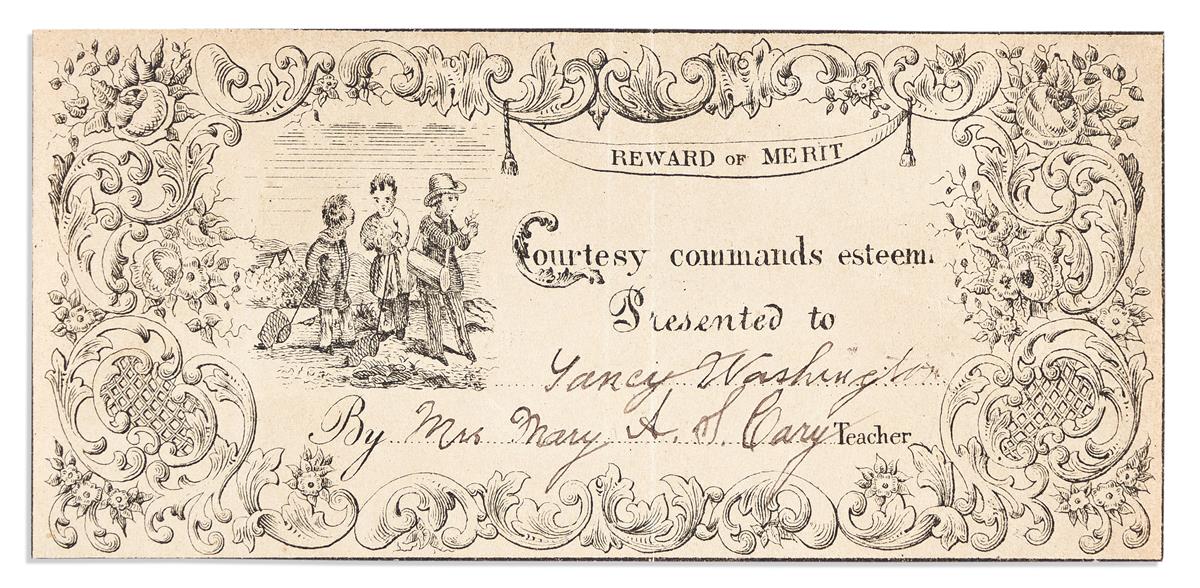 REWARD OF MERIT
Courtesy commands esteem.
Presented to
Yancy Washington
By Mrs Mary A. S. Cary Teacher